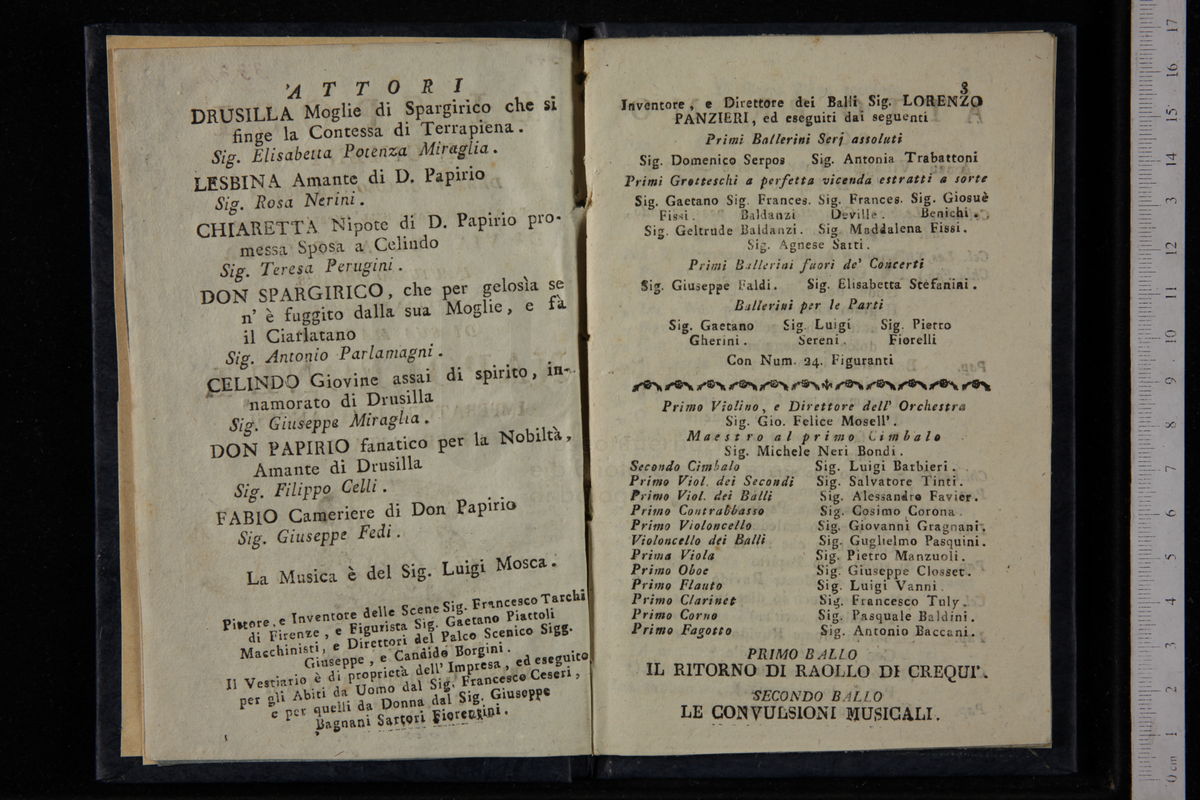 ATTORI
DRUSILLA Moglie di Spargirico che si
finge la Contessa di Terrapiena.
Sig. Elisabetta Potenza Miraglia.
LESBINA Amante di D. Papirio
Sig. Rosa Nerini.
CHIARETTA Nipote di D. Papirio pro-
messa Sposa a Celindo
Sig. Teresa Perugini.
DON SPARGIRICO, che per gelosìa se
n' è fuggito dalla sua Moglie, e fà
il Ciarlatano
Sig. Antonio Parlamagni.
CELINDO Giovine assai di spirito, in-
namorato di Drusilla
Sig. Giuseppe Miraglia.
DON PAPIRIO fanatico per la Nobiltà,
Amante di Drusilla
Sig. Filippo Celli.
FABIO Cameriere di Don Papirio
Sig. Giuseppe Fedi.
La Musica è del Sig. Luigi Mosca.
Pittore, e Inventore delle Scene Sig. Francesco Tarchi
di Firenze, e Figurista Sig. Gaetano Piattoli
Macchinisti, e Direttori del Palco Scenico Sigg.
Giuseppe, e Candido Borgini.
Il Vestiario è di proprietà dell' Impresa, ed eseguito
per gli Abiti da Uomo dal Sig. Francesco Ceseri,
e per quelli da Donna dal Sig. Giuseppe
Bagnani Sartori Fiorentini.
3
Inventore, e Direttore dei Balli Sig. LORENZO
PANZIERI, ed eseguiti dai seguenti
Primi Ballerini Serj assoluti
Sig. Domenico Serpos Sig. Antonia Trabattoni
Primi Grotteschi a perfetta vicenda estratti a sorte
Sig. Gaetano Sig. Frances. Sig. Frances. Sig. Giosuè
Fissi. Baldanzi Deville. Benichi.
Sig. Geltrude Baldanzi. Sig. Maddalena Fissi.
Sig. Agnese Satti.
Primi Ballerini fuori de' Concerti
Sig. Giuseppe Faldi. Sig. Elisabetta Stefanini.
Ballerini per le Parti
Sig. Gaetano Sig. Luigi Sig. Pietro
Gherini. Sereni. Fiorelli
Con Num. 24. Figuranti
Primo Violino, e Direttore dell' Orchestra
Sig. Gio. Felice Mosell'.
Maestro al primo Cimbalo
Sig. Michele Neri Bondi.
Secondo Cimbalo Sig. Luigi Barbieri.
Primo Viol. dei Secondi Sig. Salvatore Tinti.
Primo Viol. dei Balli Sig. Alessandro Favier.
Primo Contrabbasso Sig. Cosimo Corona.
Primo Violoncello Sig. Giovanni Gragnani.
Violoncello dei Balli Sig. Guglielmo Pasquini.
Prima Viola Sig. Pietro Manzuoli.
Primo Oboe Sig. Giuseppe Closset.
Primo Flauto Sig. Luigi Vanni.
Primo Clarinet Sig. Francesco Tuly.
Primo Corno Sig. Pasquale Baldini.
Primo Fagotto Sig. Antonio Baccani.
PRIMO BALLO
IL RITORNO DI RAOLLO DI CREQUI'.
SECONDO BALLO
LE CONVULSIONI MUSICALI.
17
16
15
14
13
12
11
10
9
8
7
6
5
4
3
2
1
0 cm